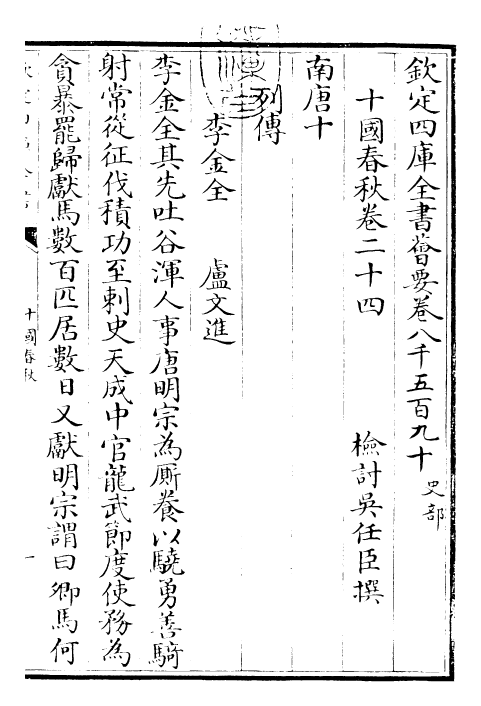 欽定四庫全書薈要卷八千五百九十 史部
十國春秋卷二十四
檢討吳任臣撰
南唐十
列傳
李金全 盧文進
李金全其先吐谷渾人事唐明宗為厮養以驍勇善騎
射常從征伐積功至刺史天成中官龍武節度使務為
貪暴罷歸獻馬數百匹居數日又獻明宗謂曰卿馬何
十國春秋
一